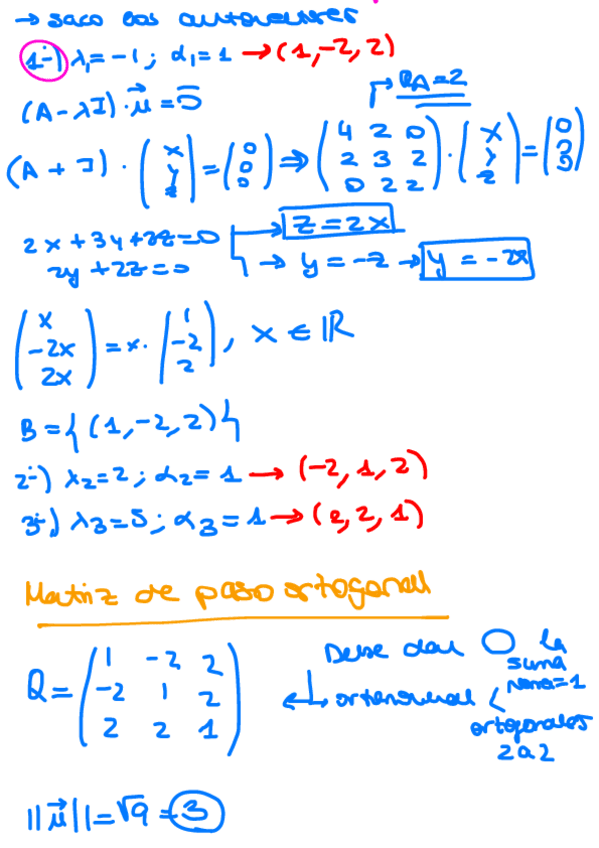 → saco los autovectores
1-) λ₁ = -1 ; α₁ = 1 → (1, -2, 2)
(A - λI) · u⃗ = 0̅
→ RA = 2
(A + I) · (x y z) = (0 0 0) ⇒ (4 2 0 / 2 3 2 / 0 2 2) · (x y z) = (0 0 0)
2x + 3y + 2z = 0 → z = 2x
2y + 2z = 0 → y = -z → y = -2x
(x / -2x / 2x) = x · (1 / -2 / 2), x ∈ ℝ
B = {(1, -2, 2)}
2-) λ₂ = 2 ; α₂ = 1 → (-2, 1, 2)
3-) λ₃ = 5 ; α₃ = 1 → (2, 2, 1)
Matriz de paso ortogonal
Q = (1 -2 2 / -2 1 2 / 2 2 1)
Debe dar 0 la suma
ortonormal < norma = 1
ortogonales 2 a 2
||u⃗|| = √9 = 3